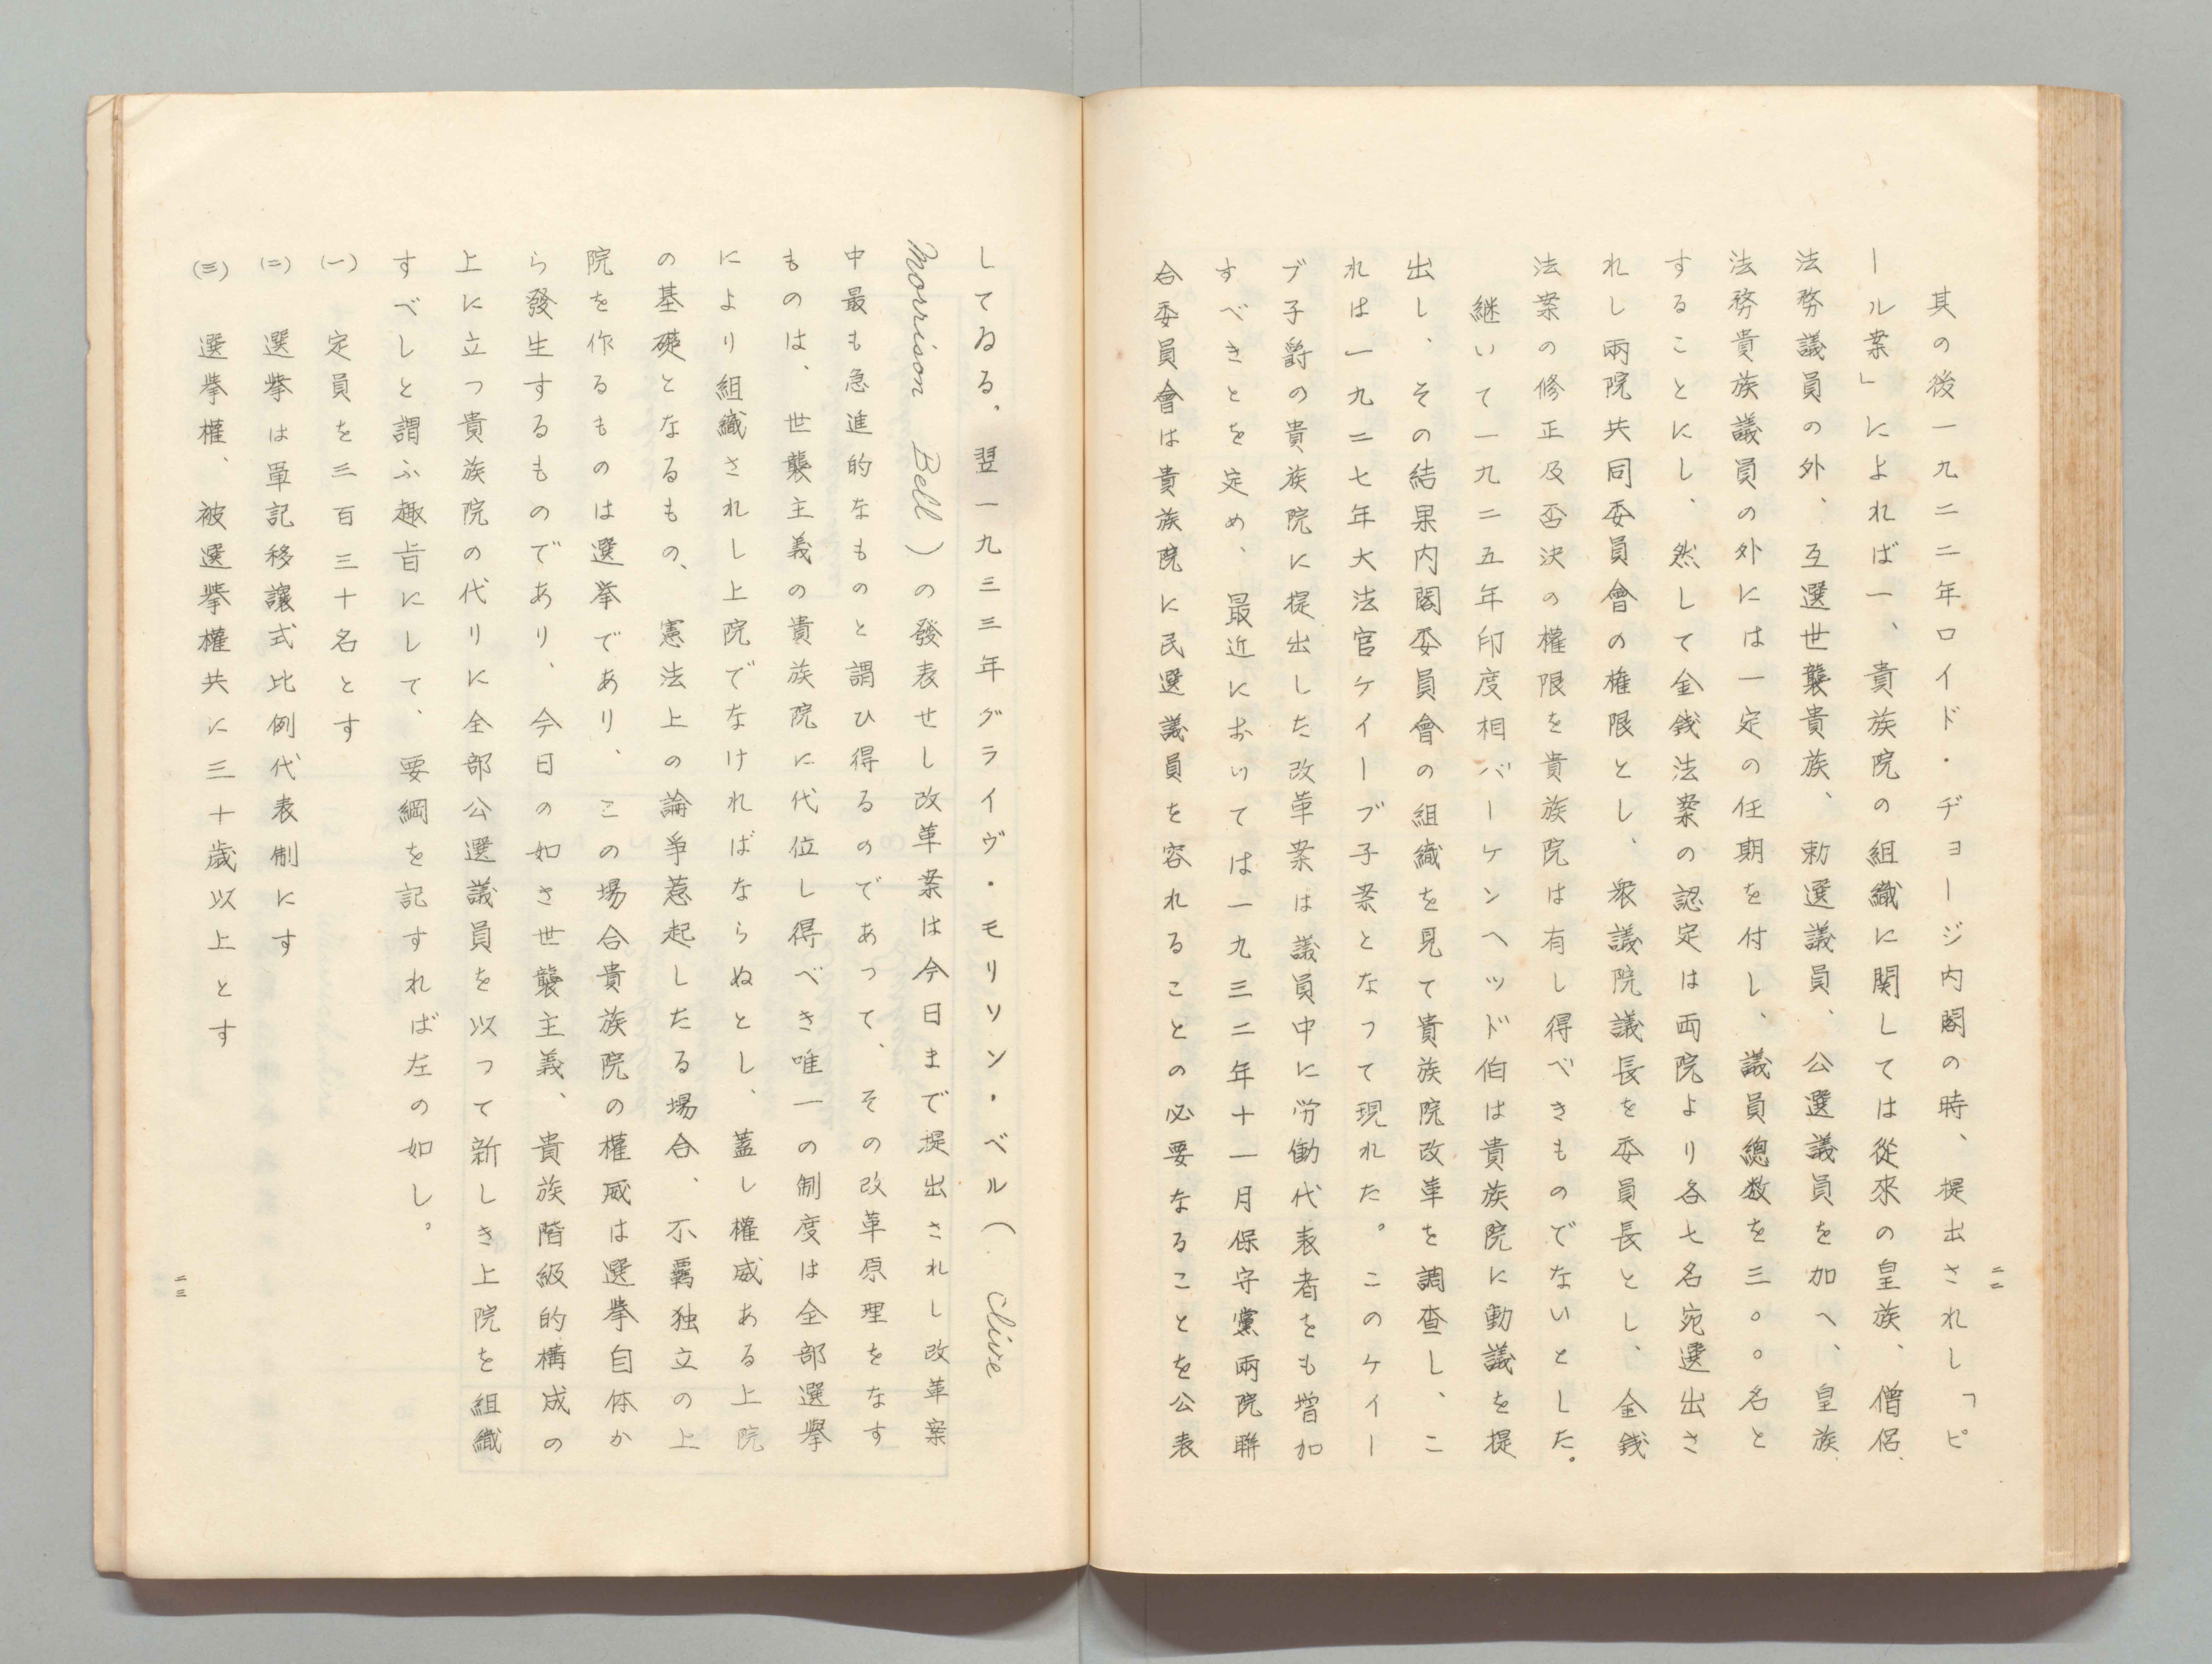 其の後一九二二年ロイド・ヂョージ内閣の時、提出されし「ピ
ール案」によれば一、貴族院の組織に関しては從來の皇族、僧侶、
法務議員の外、互選世襲貴族、勅選議員、公選議員を加へ、皇族、
法務貴族議員の外には一定の任期を付し、議員總数を三〇〇名と
することにし、然して金銭法案の認定は両院より各七名宛選出さ
れし兩院共同委員會の権限とし、衆議院議長を委員長とし、金銭
法案の修正及否決の權限を貴族院は有し得べきものでないとした。
継いて一九二五年印度相バーケンヘッド伯は貴族院に動議を提
出し、その結果内閣委員會の組織を見て貴族院改革を調査し、こ
れは一九二七年大法官ケイーブ子案となって現れた。このケイー
ブ子爵の貴族院に提出した改革案は議員中に労働代表者をも増加
すべきとを定め、最近においては一九三二年十一月保守黨兩院聯
合委員會は貴族院に民選議員を容れることの必要なることを公表
二二
してゐる。翌一九三三年グライヴ・モリソン・ベル（Clive
Morrison Bell）の發表せし改革案は今日まで提出されし改革案
中最も急進的なものと謂ひ得るのであって、その改革原理をなす
ものは、世襲主義の貴族院に代位し得べき唯一の制度は全部選擧
により組織されし上院でなければならぬとし、蓋し權威ある上院
の基礎となるもの、憲法上の論爭惹起したる場合、不羈独立の上
院を作るものは選挙であり、この場合貴族院の權威は選擧自体か
ら發生するものであり、今日の如き世襲主義、貴族階級的構成の
上に立つ貴族院の代りに全部公選議員を以つて新しき上院を組織
すべしと謂ふ趣旨にして、要綱を記すれば左の如し。
(一)　定員を三百三十名とす
(二)　選擧は單記移讓式比例代表制にす
(三)　選擧權、被選擧權共に三十歳以上とす
二三